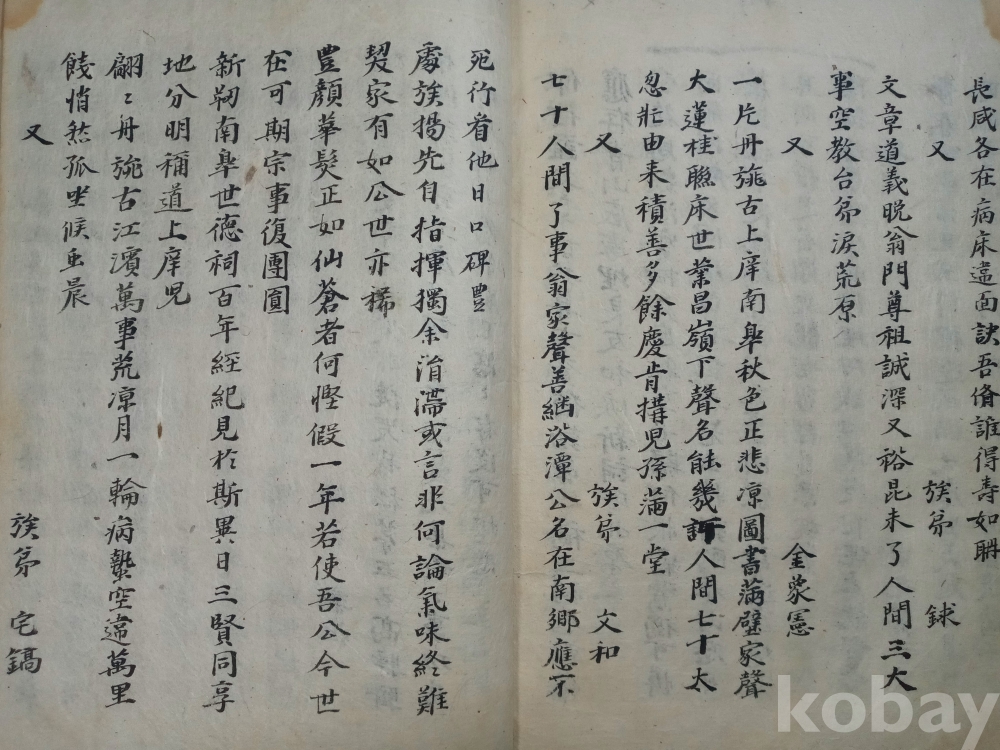 長咸各在病床違面訣吾脩誰得壽如聃
又 族弟 銶
文章道義晩翁門尊祖誠深又裕昆未了人間三大
事空教台弟淚荒原
又 金蒙憲
一片丹旐古上庠南皐秋色正悲凉圖書滿壁家聲
大蓮桂聮床世業昌嶺下聲名能幾許人間七十太
忽壯由来積善多餘慶肯搆児孫滿一堂
又 族弟 文和
七十人間了事翁家聲善繼浴潭公名在南鄉應不
死行看他日口碑豊
處族揚先自指揮獨余涓滯或言非何論氣味終難
契家有如公世亦稀
豊顏華髮正如仙蒼者何慳假一年若使吾公今世
在可期宗事復團圓
新刱南皐世德祠百年經紀見於斯異日三賢同享
地分明稱道上庠児
翩〻丹旐古江濱萬事荒凉月一輪病蟄空違萬里
餞悄然孤坐候虫晨
又 族弟 宅鎬
kobay